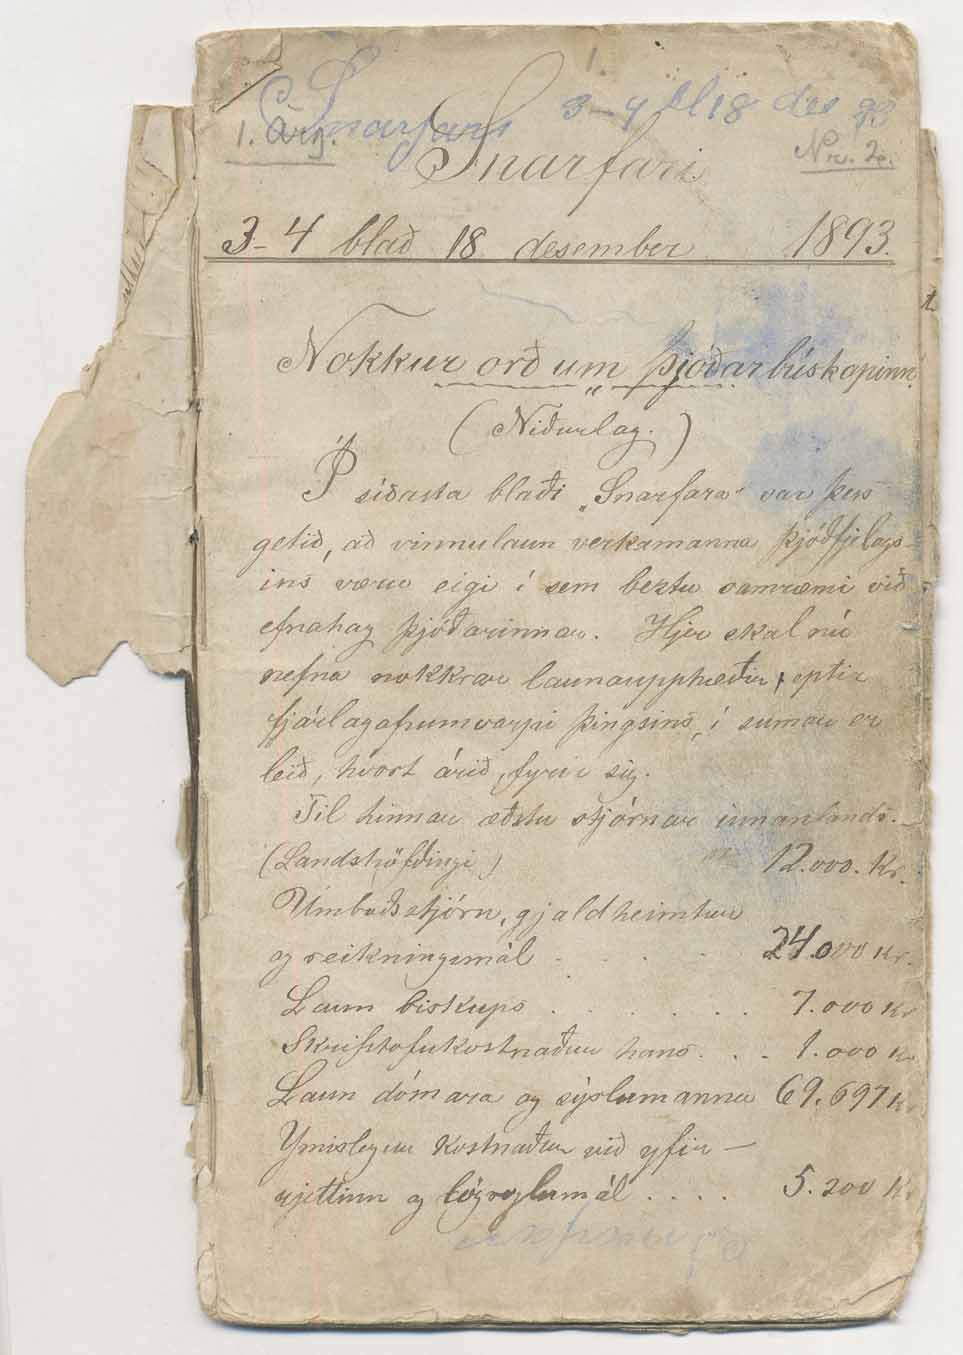 Snarfari 3-4 bl 18 des 93
1. Árg.
Nr. 2.
Snarfari.
3-4 blað 18 desember 1893.
Nokkur orð um þjóðarbúskapinn
(Niðurlag.)
Í síðasta blaði „Snarfara" var þess
getið, að vinnulaun verkamanna þjóðfjelags-
ins væru eigi í sem beztu samræmi við
efnahag þjóðarinnar. Hjer skal nú
nefna nokkrar launaupphæðir eptir
fjárlagafrumvarpi þingsins, í sumar er
leið, hvort árið, fyrir sig.
Til hinnar æðstu stjórnar innanlands.
(Landshöfðingi) 12.000. Kr.
Umboðsstjórn, gjaldheimtur
og reikningsmál . . . . 24.000 Kr.
Laun biskups . . . . . . . 7.000 Kr
Skrifstofukostnaður hans . . . 1.000 Kr
Laun dómara og sýslumanna 69.697 Kr
Ymislegur kostnaður við yfir-
rjettinn og lögreglumál . . . . 5.200 Kr